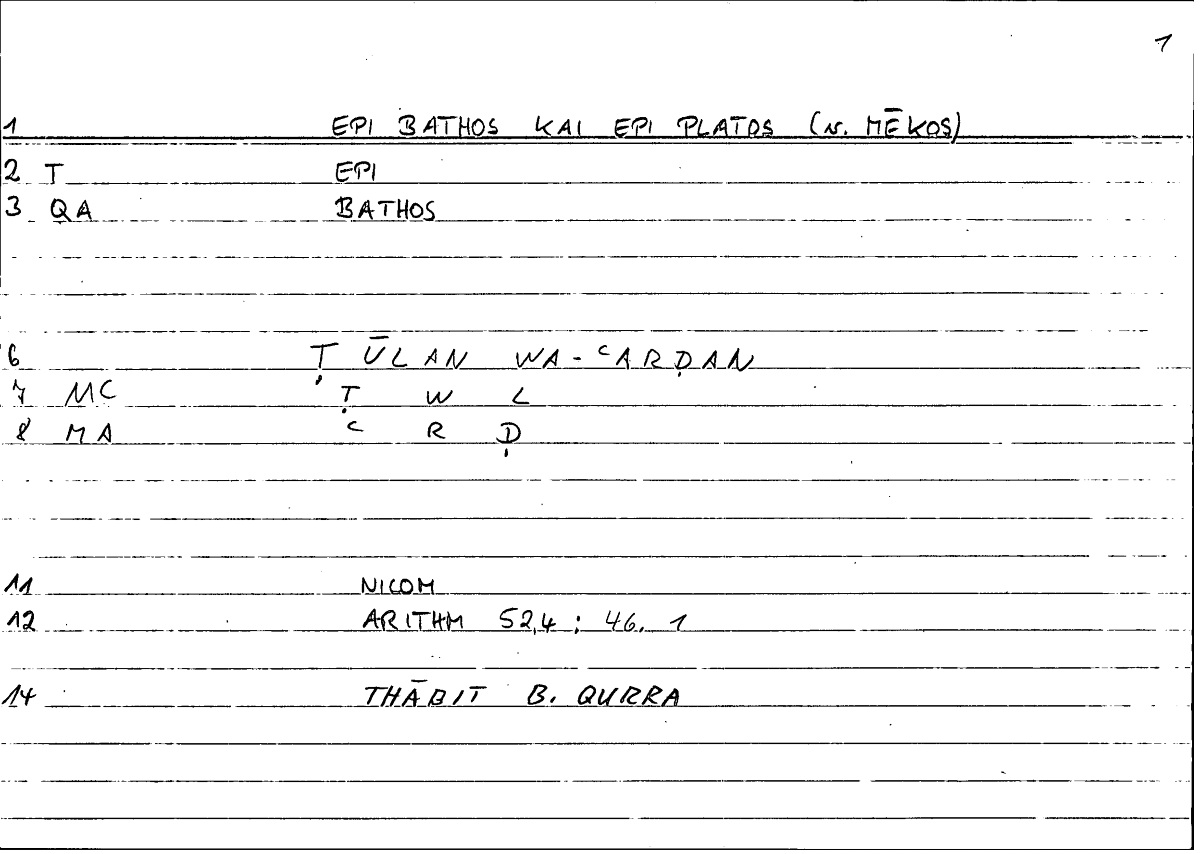 1
1 EPI BATHOS KAI EPI PLATOS (v. MĒKOS)
2 T EPI
3 QA BATHOS
6 ṬŪLAN WA-ᶜARḌAN
7 MC Ṭ W L
8 MA ᶜ R Ḍ
11 NICOM
12 ARITHM 52,4; 46. 1
14 THĀBIT B. QURRA